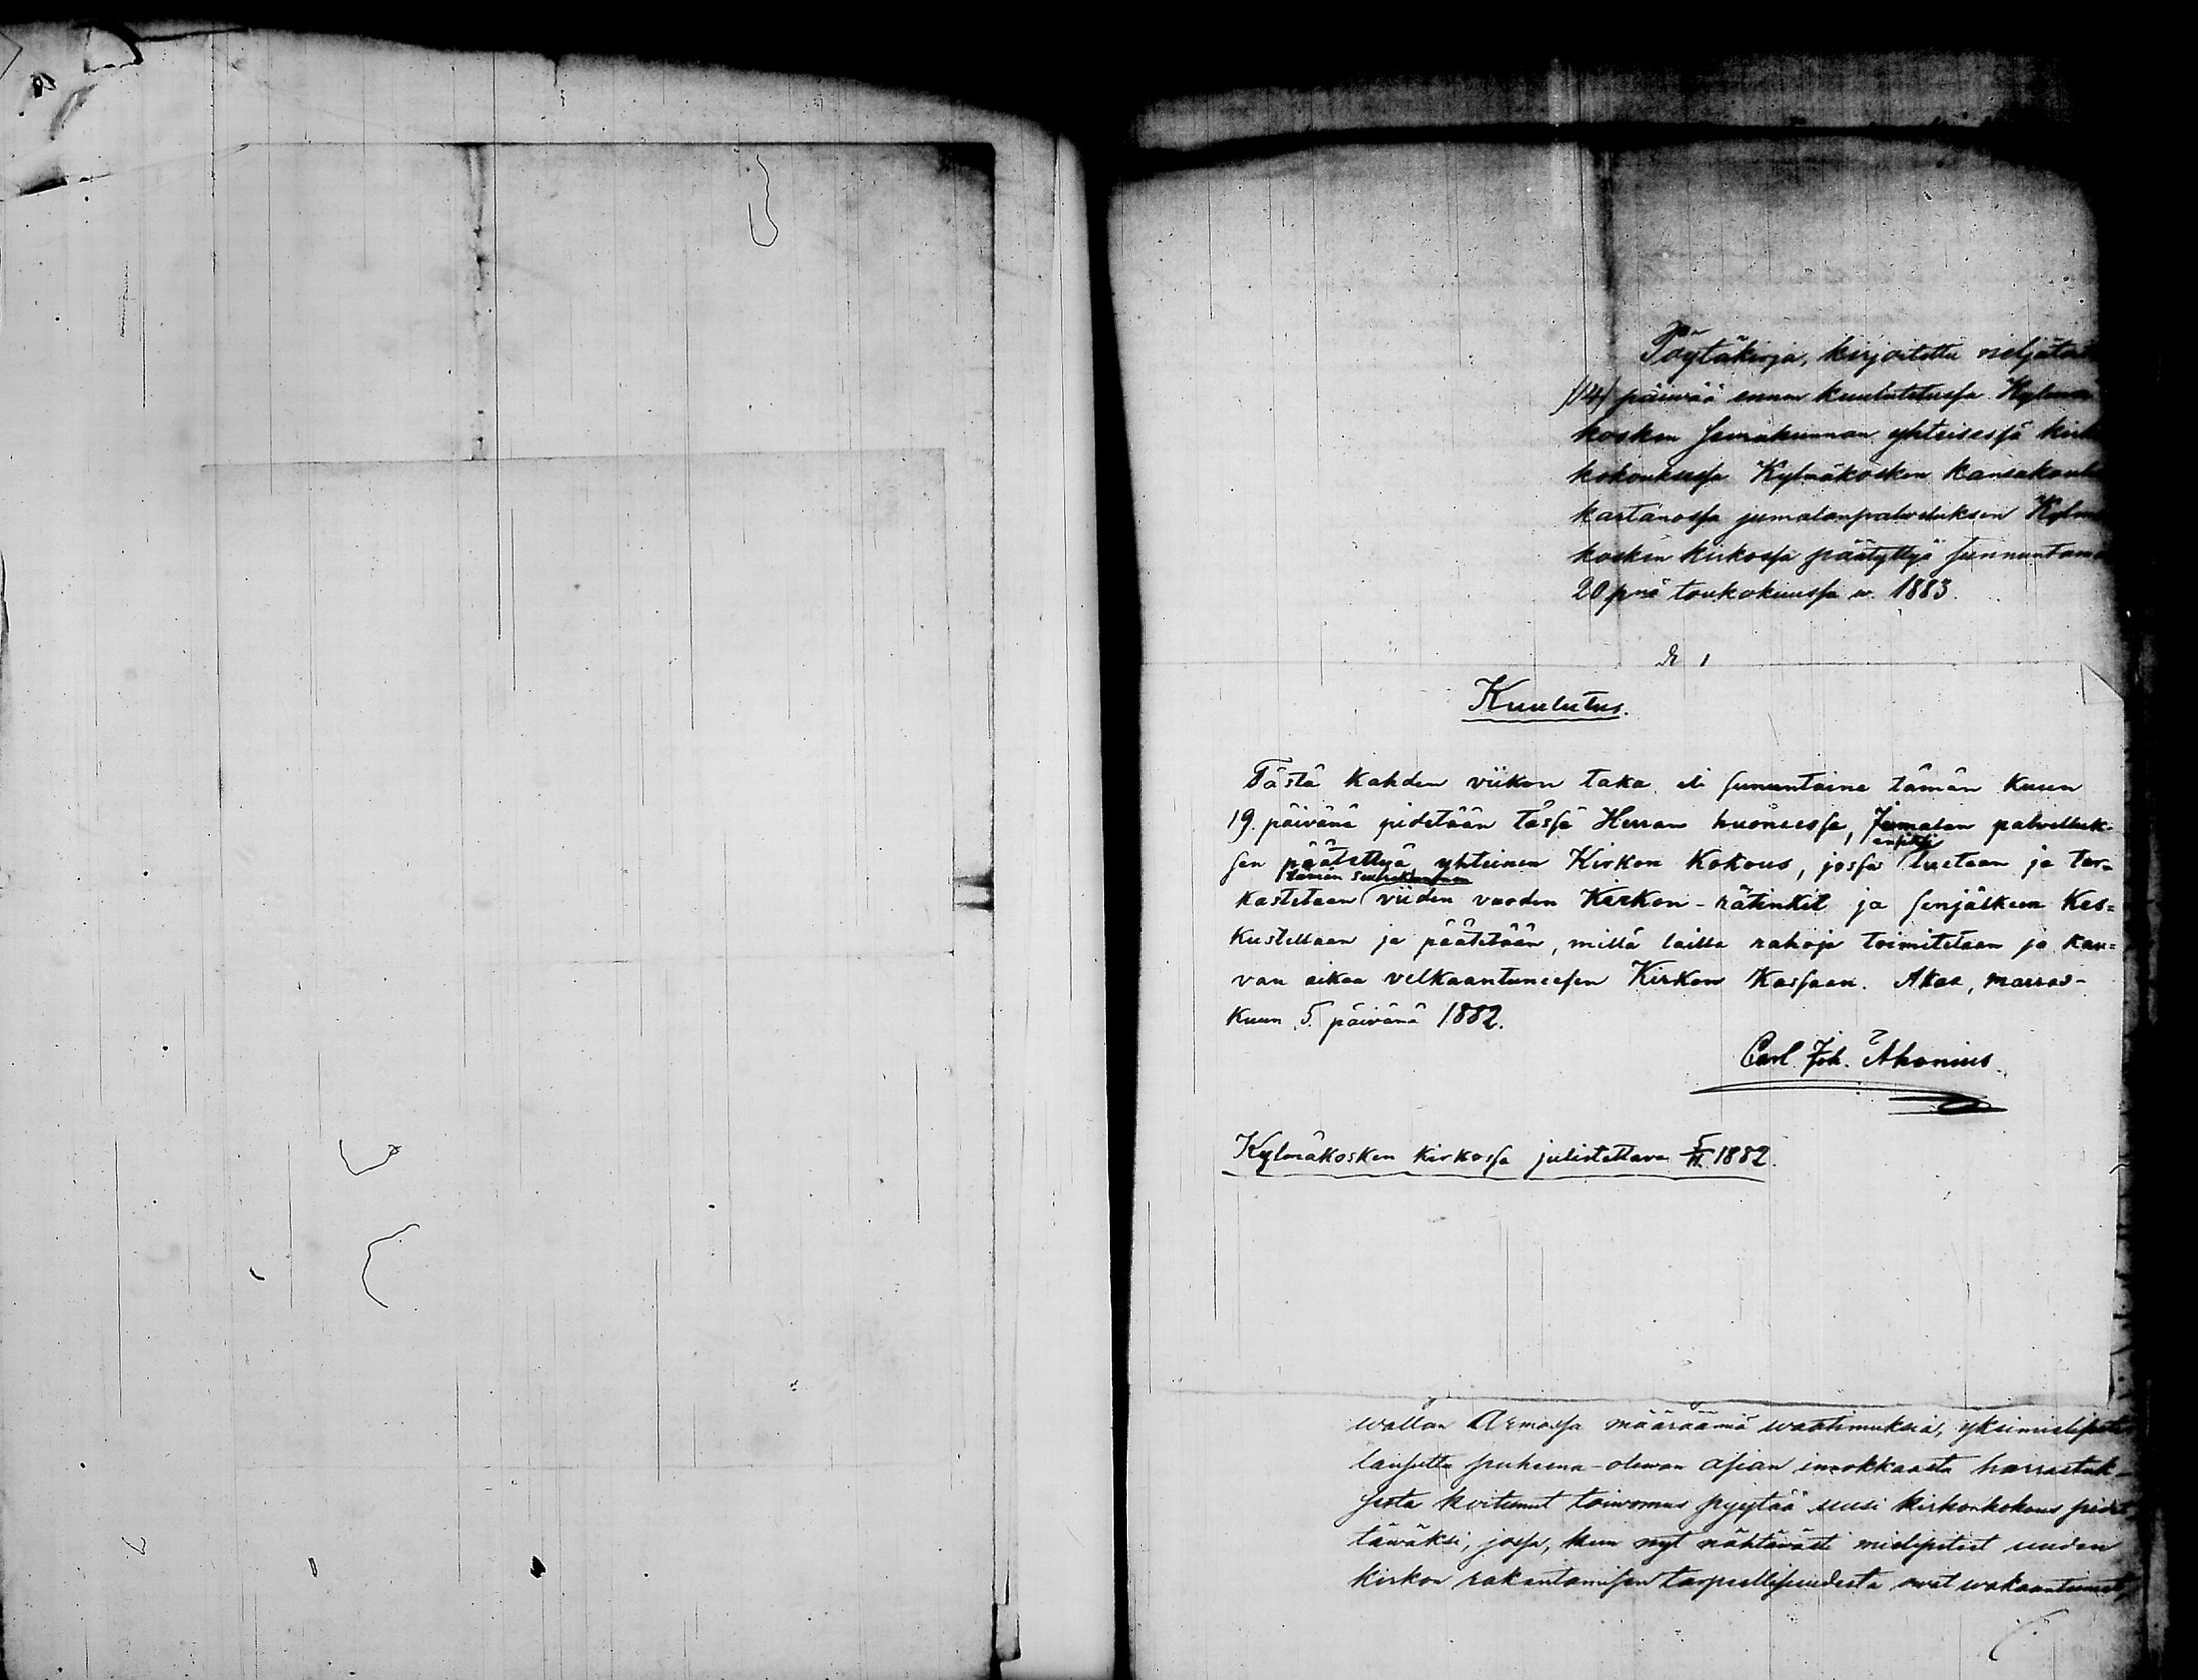 Pöytäkirja, kirjoitettu neljäto
/14/ päivää ennen kuulutetussa Kylmä
kosken seurakunnan yhteisessä kirk
kokouksessa Kylmäkosken kansakoul
kartanossa jumalanpalveluksen Kylm
kosken kirkossa päätyttyä sunnuntain
20 pnä toukokuussa w. 1883.
§ 1
Kuulutus.
Tästä kahden viikon taka eli sununtaine tämän kuun
19. päivänä pidetään tässä Herran huoneessa, Jumalan palvelluk-
sen päätettyä yhteinen Kirkon Kokous, jossa ensiksi luetaan ja tar-
kastetaan tämän seurakunnan viiden vuoden Kirkon-rätinkit ja senjälkeen Kes=
kustellaan ja päätetään, millä lailla rahoja toimitetaan jo kau=
van aikaa velkaantuneesen Kirkon Kassaan. Akaa, marras-
kuun 5. päivänä 1882.
Carl Joh. Ahonius.
Kylmäkosken kirkossa julistettava 5/11 1882.
wallan Armossa määräämiä waatimuksia, yksimielises
lausuttu puheena-olewan asian innokkaasta harrastuk-
sesta koitunut toiwomus pyytää uusi kirkonkokous pidet
täwäksi, jossa, kun nyt nähtäwästi mielipiteet uuden
kirkon rakentamisen tarpeellisuudesta owat wakaantuneet